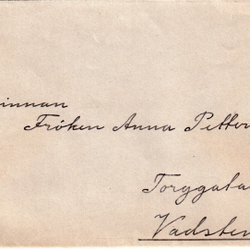 innan
Fröken Anna Petter
Torggata
Vadsten